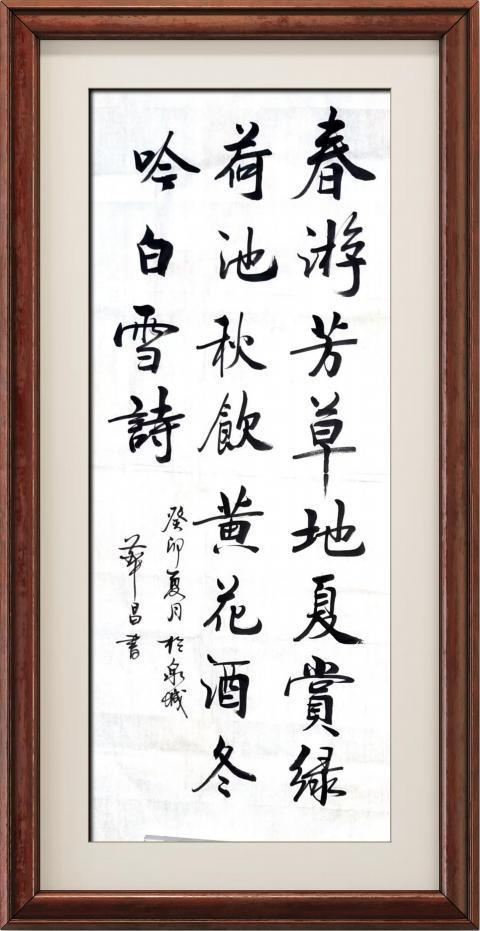 春游芳草地夏賞绿
荷池秋飲黄花酒冬
吟白雪詩
癸卯夏月於泉城
華昌書